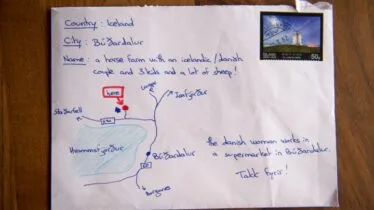 Country : Iceland
City : Búðardalur
Name : a horse farm with an icelandic/danish
couple and 3 kids and a lot of sheep!
here
Ísafjörður
590
Hvammsfjörður
Búðardalur
60
Borgarnes
the danish woman works in
a supermarket in Búðardalur.
Takk fyrir!
ÍSLAND
50g